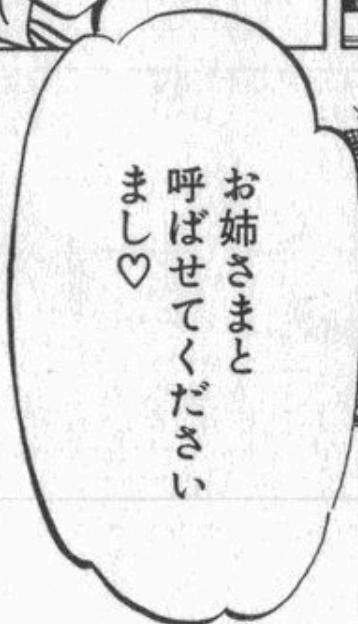 お姉さまと
呼ばせてください
まし♡